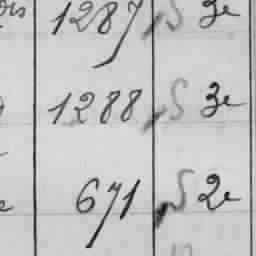 1287 S 3e
1288 S 3e
671 S 2e